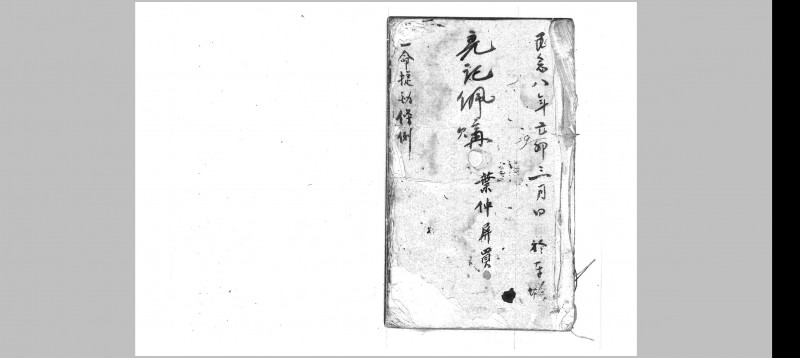 民念八年己卯三月日於平
亮記佩購
葉仲屏買
一命提功條例